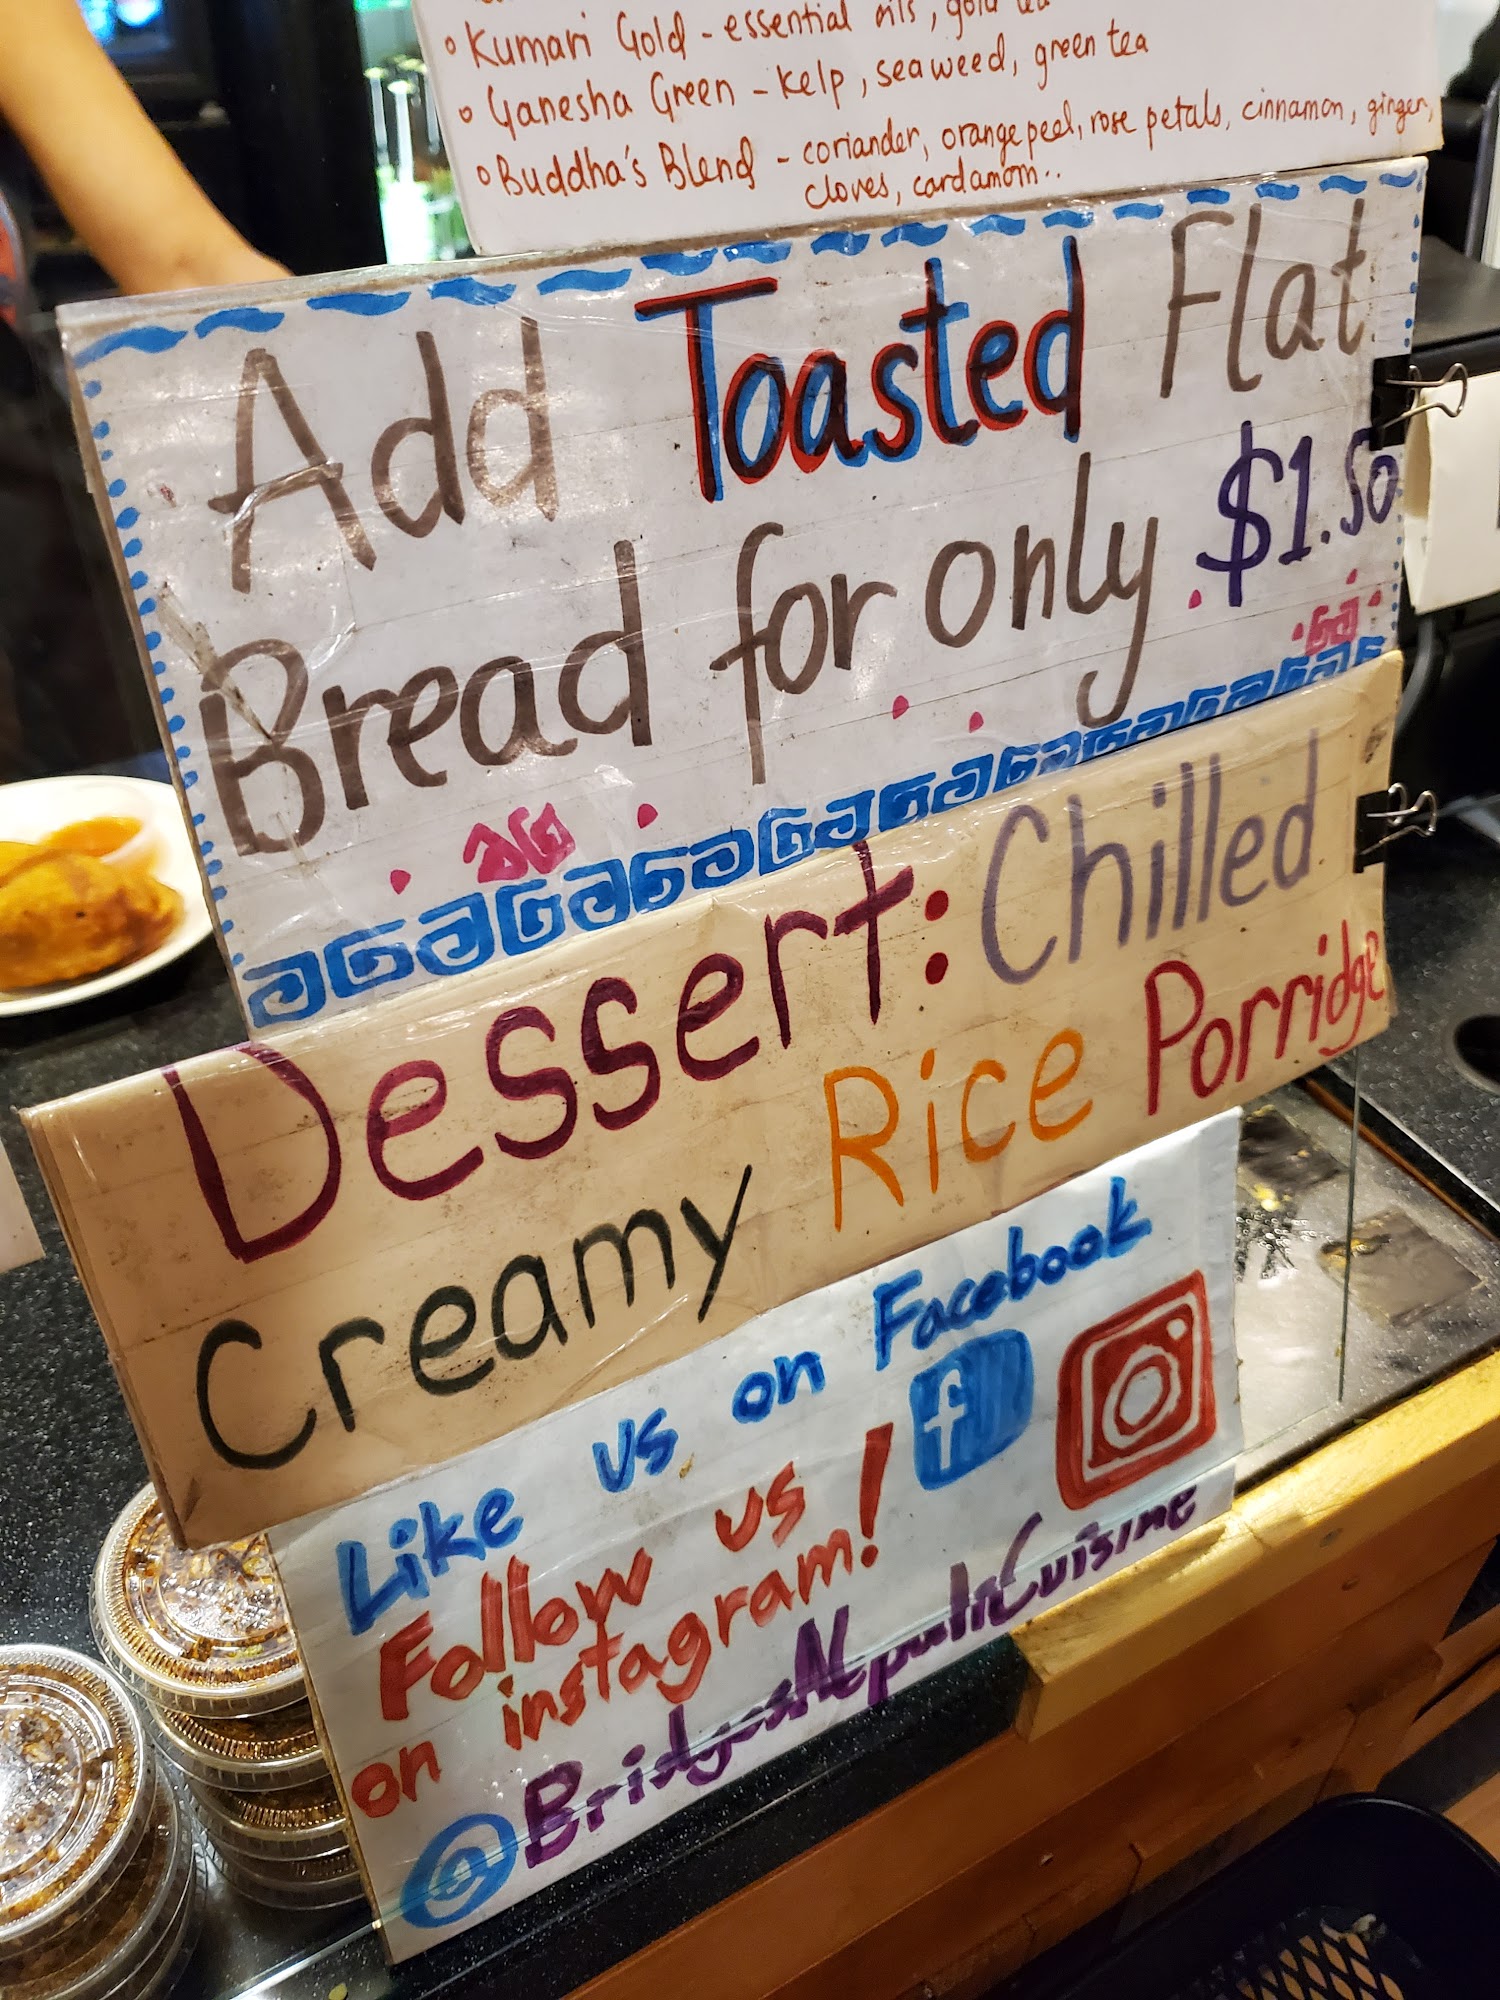 • Kumari Gold - essential oils, gold tea
• Ganesha Green - kelp, seaweed, green tea
• Buddha's Blend - coriander, orange peel, rose petals, cinnamon, ginger,
cloves, cardamom..
Add Toasted Flat
Bread for only $1.50
Dessert: Chilled
Creamy Rice Porridge
Like us on Facebook
f
Follow us
on instagram!
@BridgesNepaliCuisine